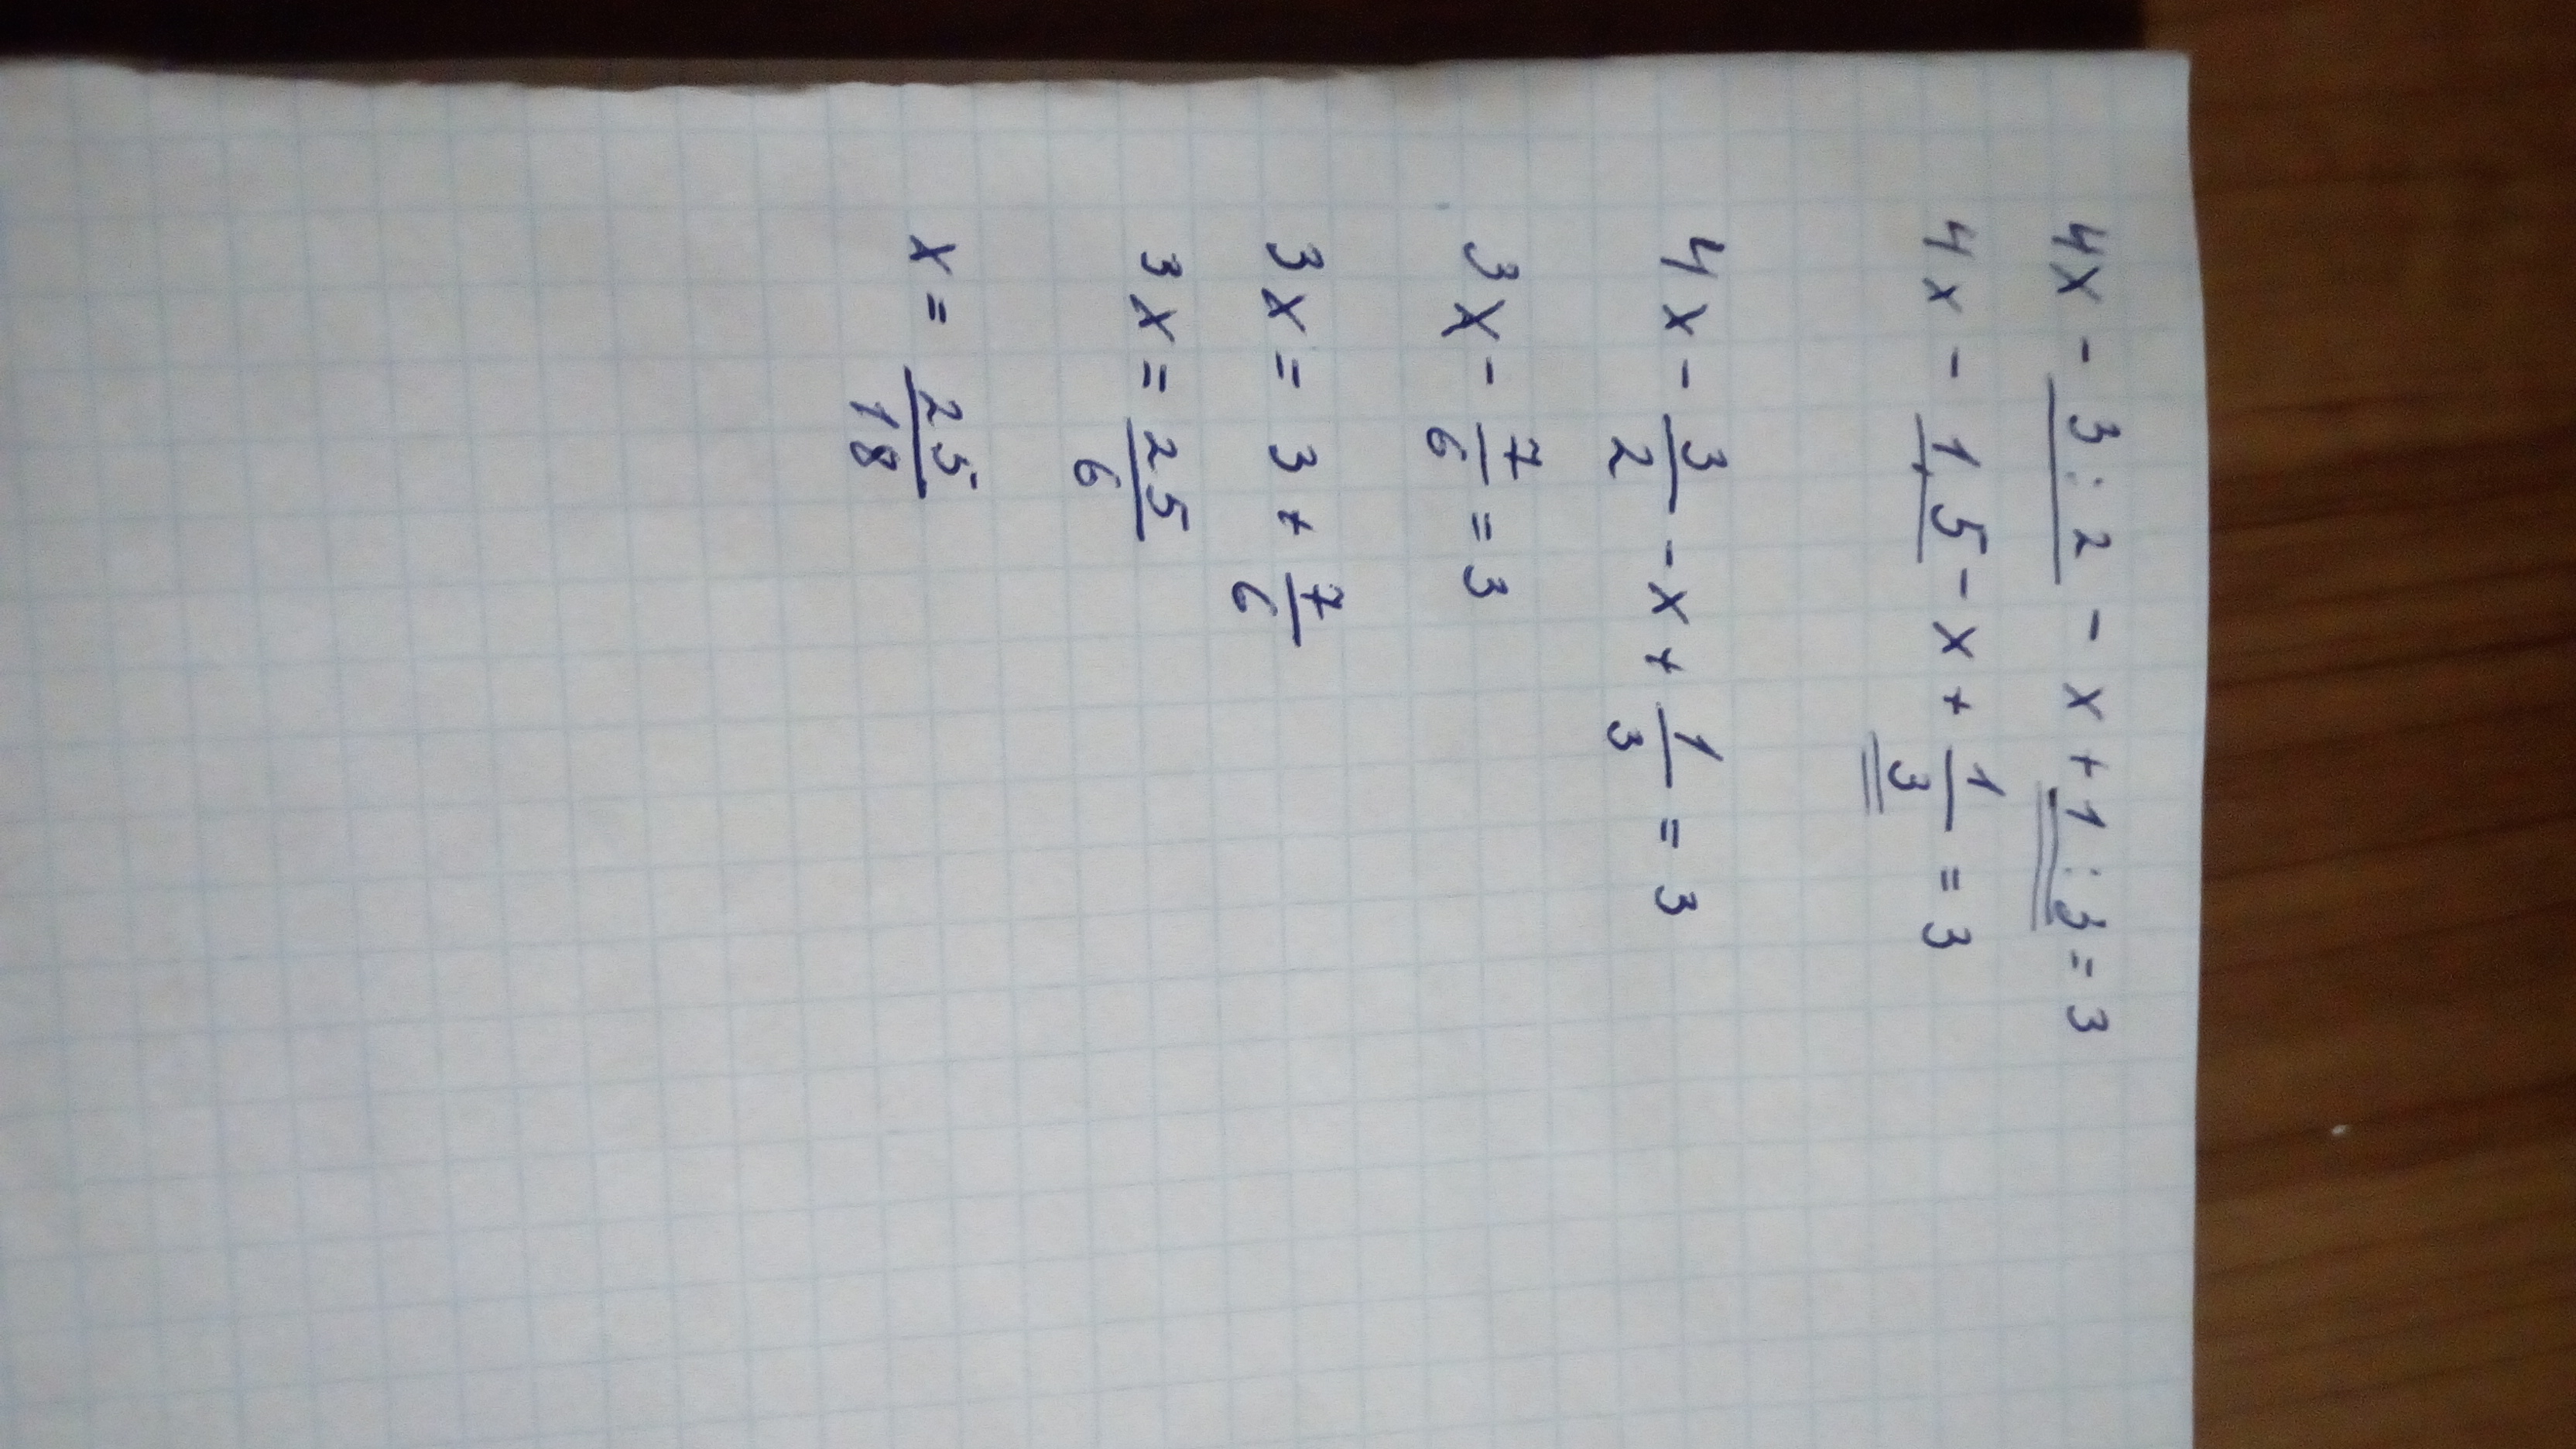 4x - 3 : 2 - x + 1 : 3 = 3
4x - 1,5 - x + 1/3 = 3
4x - 3/2 - x + 1/3 = 3
3x - 7/6 = 3
3x = 3 + 7/6
3x = 25/6
x = 25/18